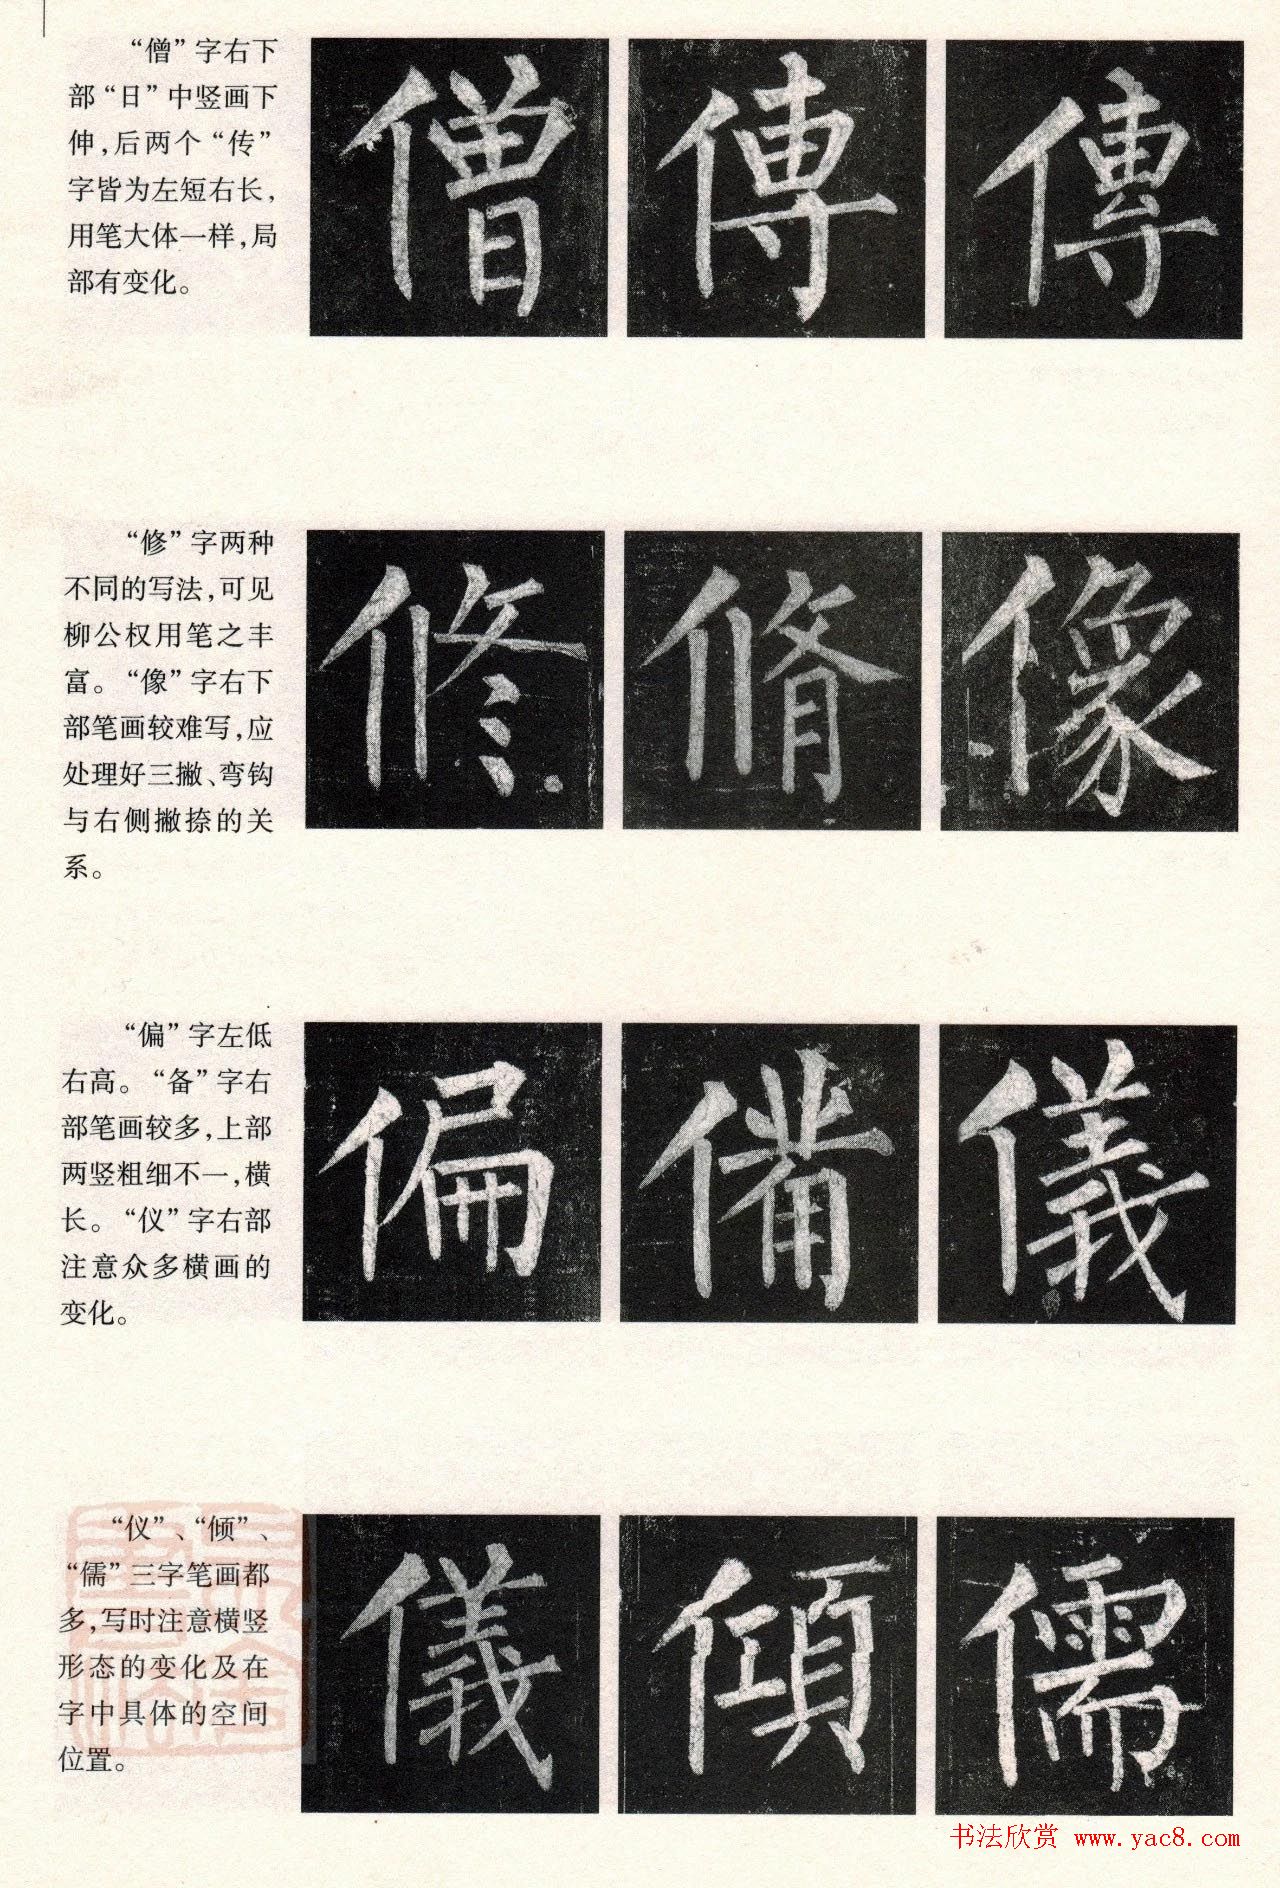 “僧”字右下
部“日”中竖画下
伸，后两个“传”
字皆为左短右长，
用笔大体一样，局
部有变化。
僧 傳 傳
“修”字两种
不同的写法，可见
柳公权用笔之丰
富。“像”字右下
部笔画较难写，应
处理好三撇、弯钩
与右侧撇捺的关
系。
修 脩 像
“偏”字左低
右高。“备”字右
部笔画较多，上部
两竖粗细不一，横
长。“仪”字右部
注意众多横画的
变化。
偏 備 儀
“仪”、“倾”、
“儒”三字笔画都
多，写时注意横竖
形态的变化及在
字中具体的空间
位置。
儀 傾 儒
书法欣赏 www.yac8.com